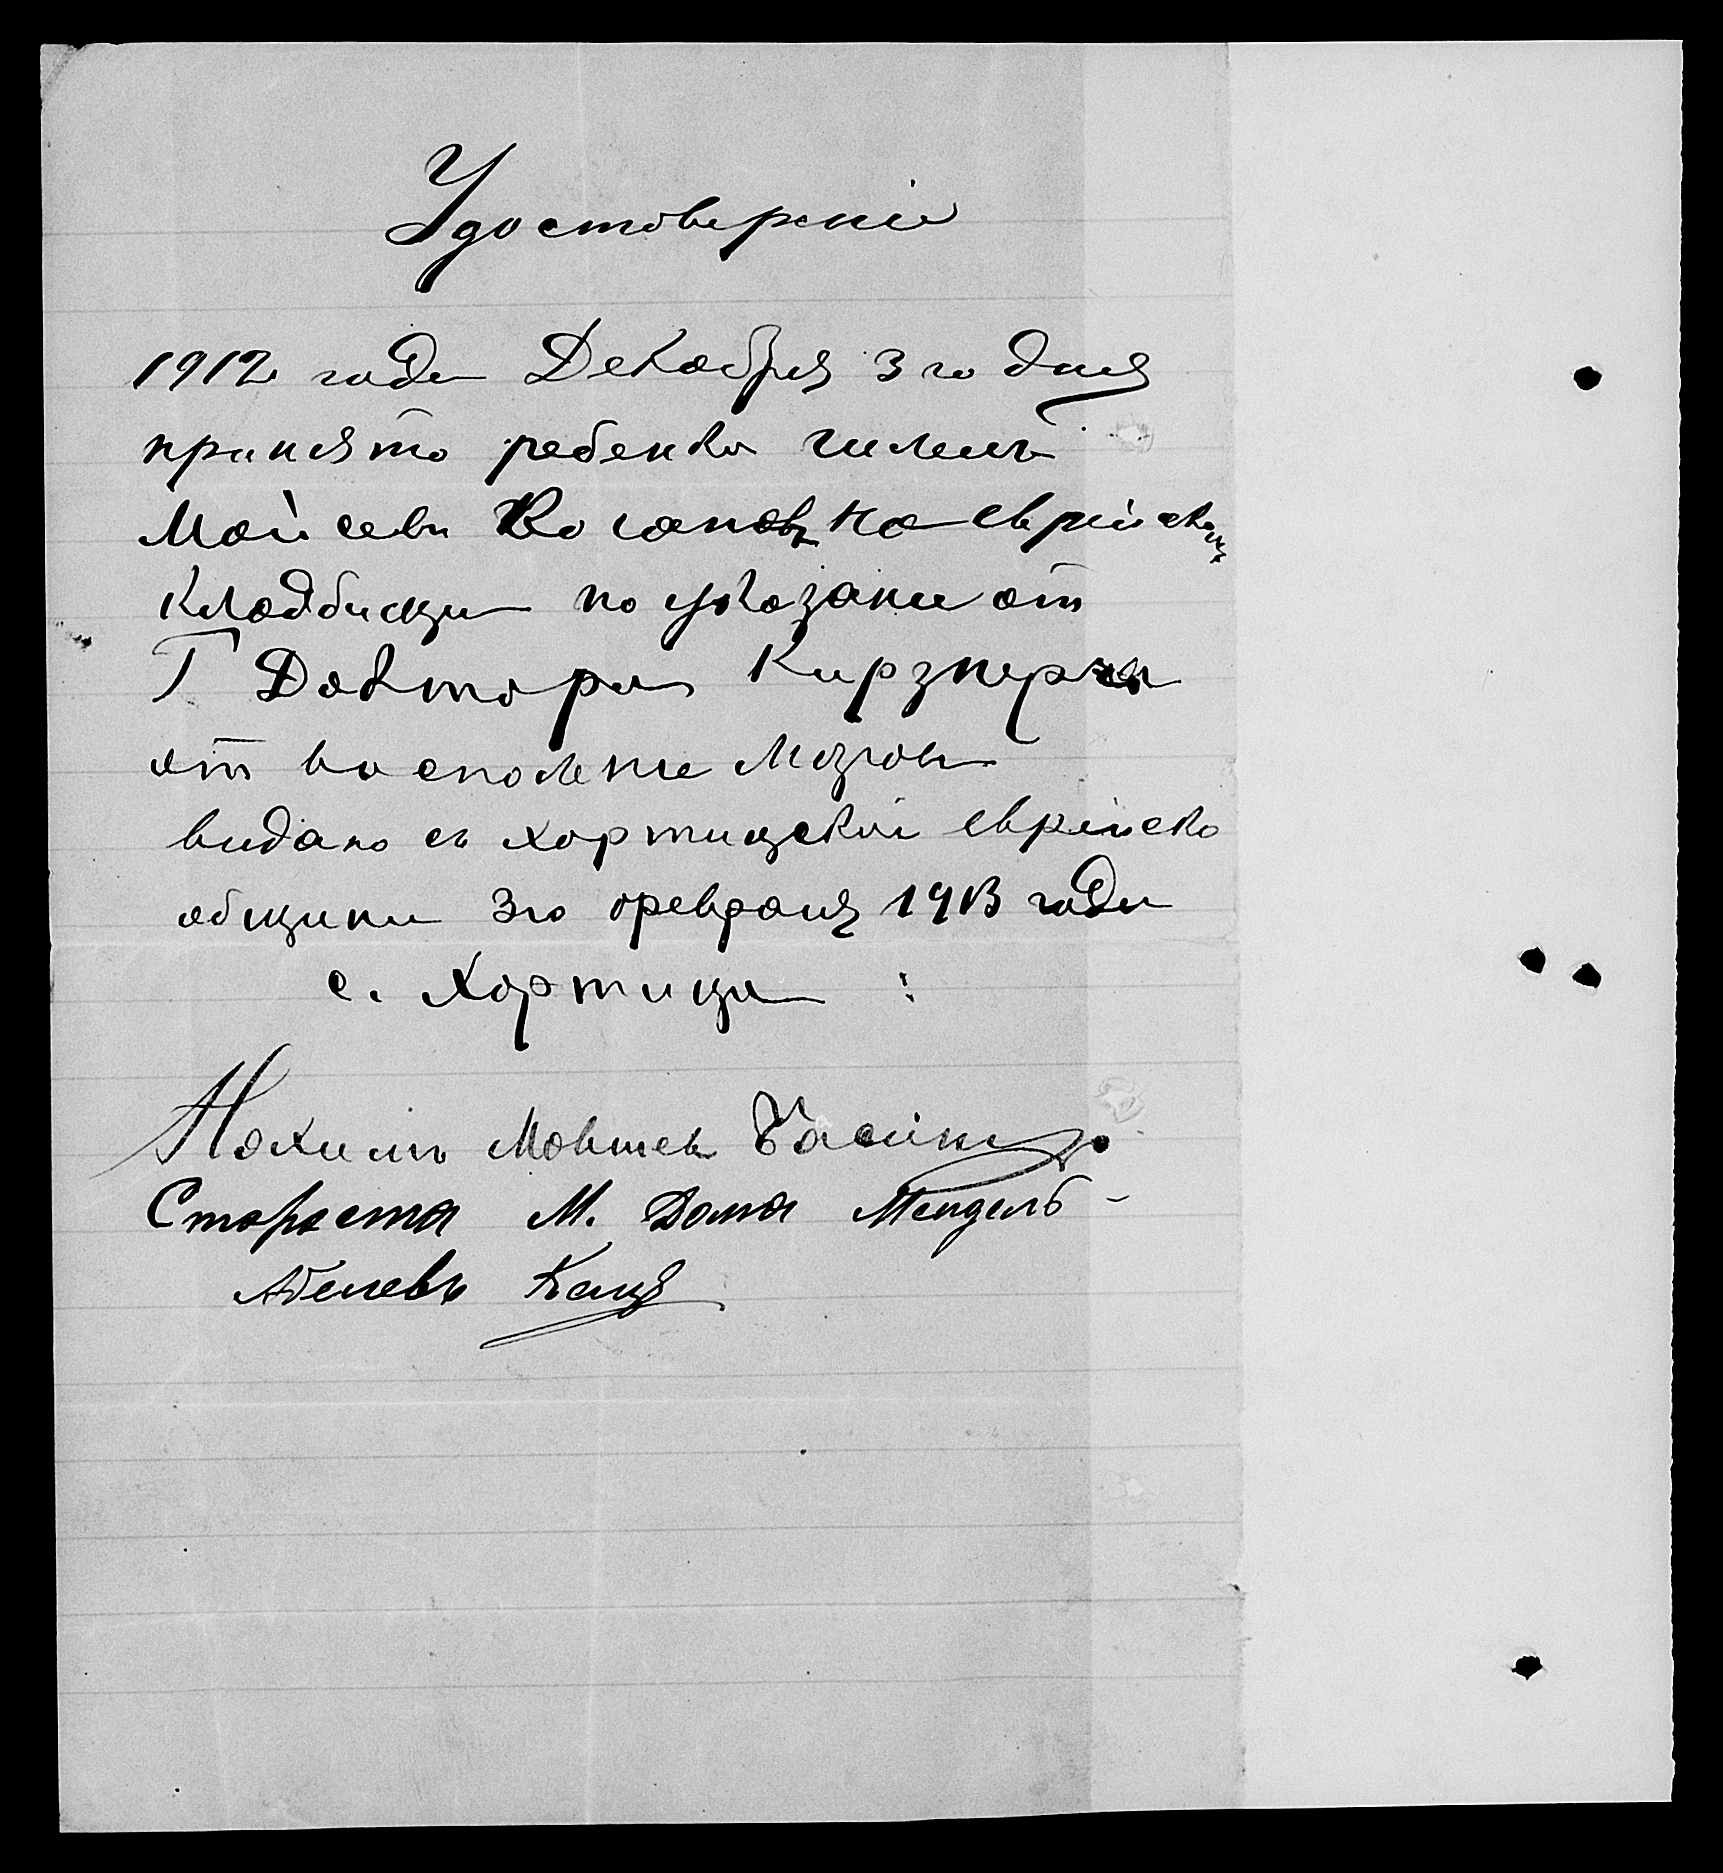 Удостоверение
1912 года Декабря 3го дня
принято ребенка Гилелъ
Мойсеев Коганов на еврейских
Кладбищи по указание от
Г Доктора Кирзнера
от восполение Мозгов
видано съ Хортицкой еврейско
общини 3го февраля 1913 года
с. Хортица :
Нохимъ Мовшев
Староста М. Дома Мендель-
Абелевъ Кацъ